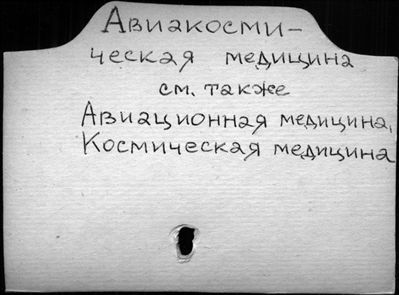 Авиакосми-
ческая медицина
см. также
Авиационная медицина,
Космическая медицина